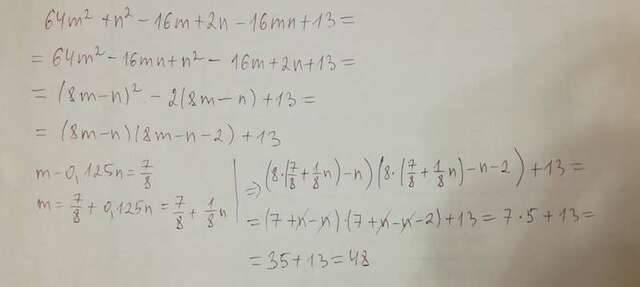 64m² + n² - 16m + 2n - 16mn + 13 =
= 64m² - 16mn + n² - 16m + 2n + 13 =
= (8m-n)² - 2(8m-n) + 13 =
= (8m-n)(8m-n-2) + 13
m - 0,125n = 7/8
m = 7/8 + 0,125n = 7/8 + 1/8 n
⇒ (8·(7/8 + 1/8 n) - n) (8·(7/8 + 1/8 n) - n - 2) + 13 =
= (7 + n - n)·(7 + n - n - 2) + 13 = 7·5 + 13 =
= 35 + 13 = 48